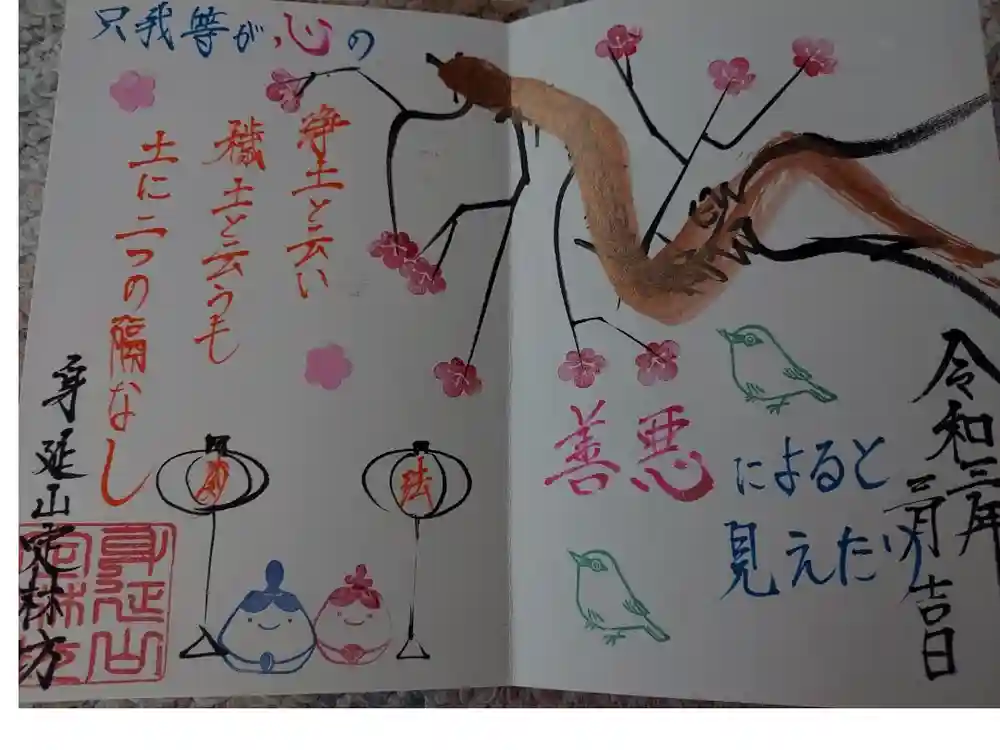 浄土と云い
穢土と云うも
土に二つの隔なし
只我等が心の
善悪によると
見えたり
令和三年
二月吉日
妙
法
身延山定林方
身延山